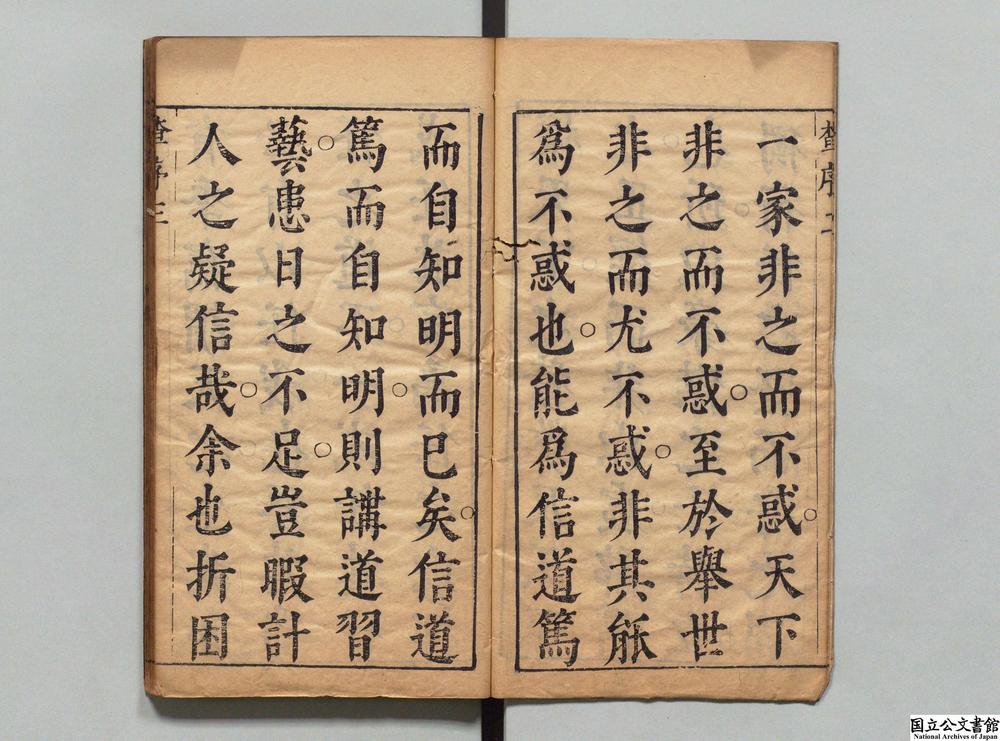 一家非之而不惑○天下
非之而不惑○至於舉世
非之而尤不惑○非其能
爲不惑也○能爲信道篤
而自知明而已矣○信道
篤而自知明○則講道習
藝○患日之不足○豈暇計
人之疑信哉○余也折困
国立公文書館
National Archives of Japan